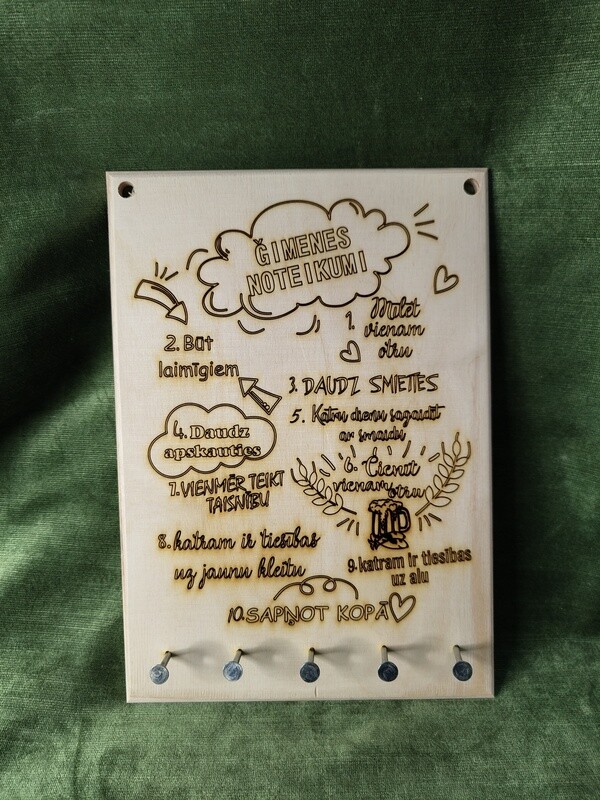 ĢIMENES
NOTEIKUMI
1. Mīlēt
vienam
otru
2. Būt
laimīgiem
3. DAUDZ SMIETIES
4. Daudz
apskauties
5. Katru dienu sagaidīt
ar smaidu
6. Cienīt
vienam otru
7. VIENMĒR TEIKT
TAISNĪBU
8. katram ir tiesības
uz jaunu kleitu
9. katram ir tiesības
uz alu
10. SAPŅOT KOPĀ